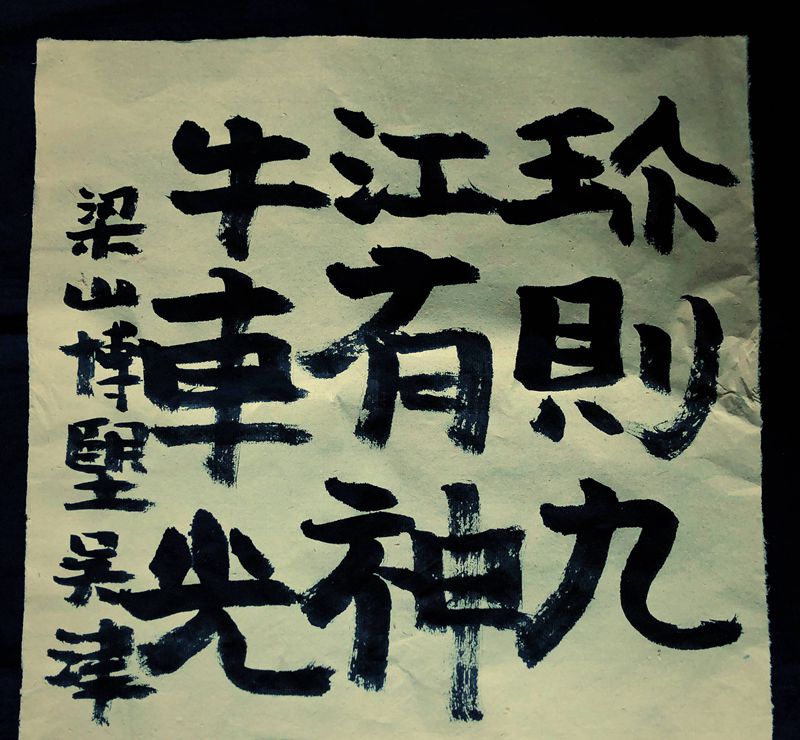 珎則九
江有神
牛車光
梁山博堅吳津